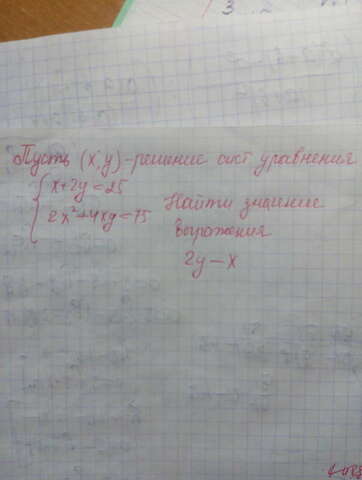 3 .. 2
Пусть (x; y) - решение сист уравнения
x+2y=25
2x²+4xy=75
Найти значение
выражения
2y-x